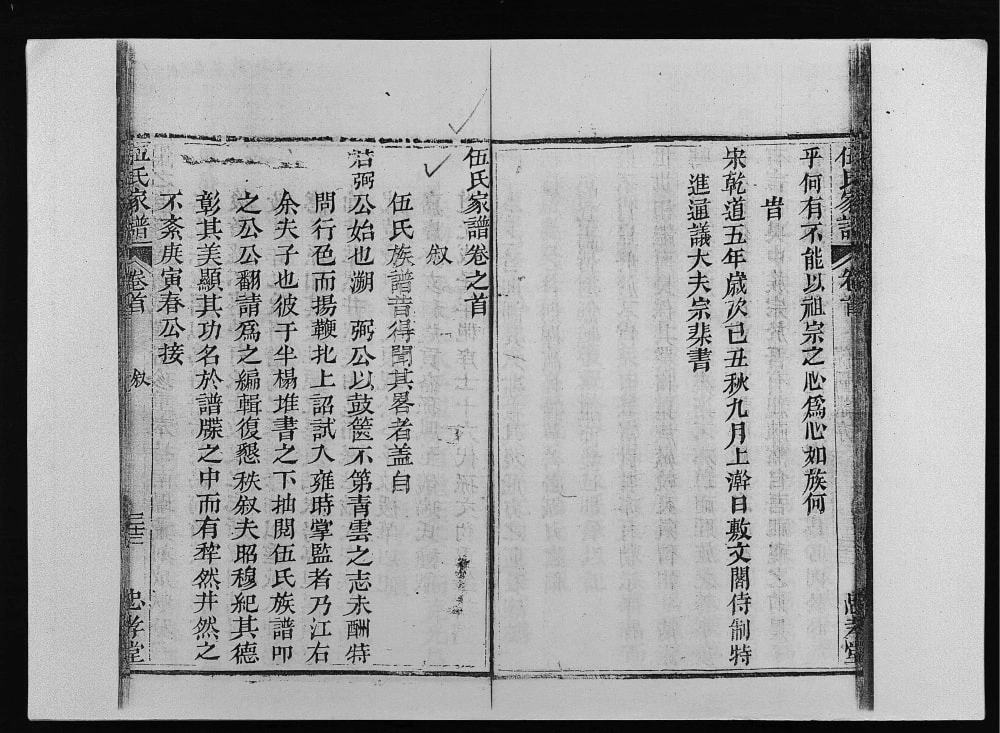 伍氏家譜 卷首 忠孝堂
乎何有不能以祖宗之心爲心如族何
旹
宋乾道五年歲次己丑秋九月上澣日敷文閣侍制特
進通議大夫宗棐書
伍氏家譜卷之首
敘
伍氏族譜昔得聞其畧者盖自
若弼公始也溯 弼公以鼓篋不第青雲之志未酬特
問行色而揚鞭北上詔試入雍時掌監者乃江右
余夫子也彼于半榻堆書之下抽閱伍氏族譜叩
之公公翻請爲之編輯復懇秩敘夫昭穆紀其德
彰其美顯其功名於譜牒之中而有秩然井然之
不紊庚寅春公接
伍氏家譜 卷首 敘 忠孝堂